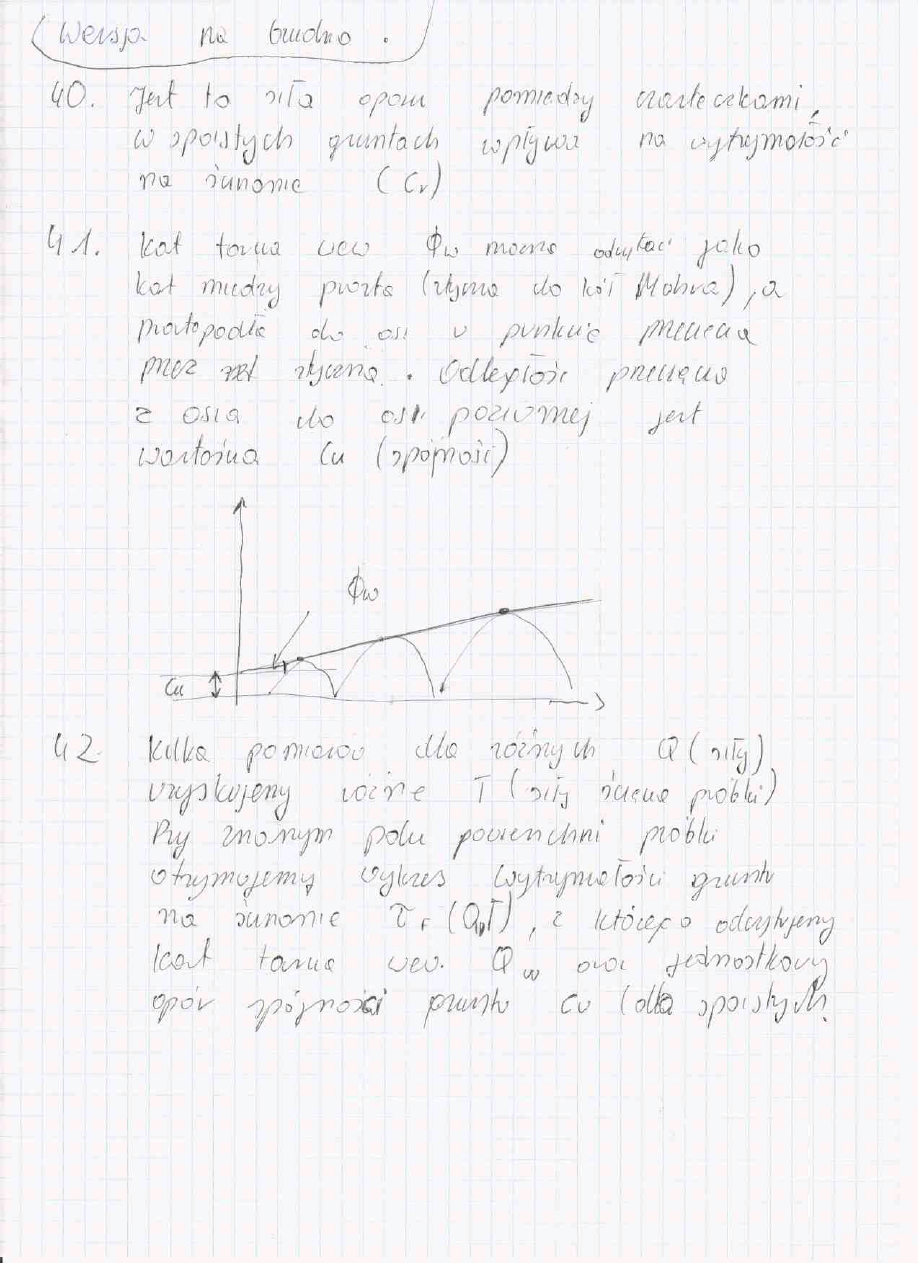 Wersja na brudno.
40. Jest to siła oporu pomiedzy czasteczkami,
w spoistych gruntach wpływa na wytrzymałość
na ścinanie (Cu)
41. Kat tarcia wew Φw mozna odczytać jako
kat miedzy prosta (styczna do kół Mohra), a
prostopadła do osi w punkcie przeciecia
przez styczna. Odległość przeciecia
z osia do osi poziomej jest
wartościa Cu (spójności)
Φw
Cu
42 Kilka pomiarów dla różnych Q (siły)
uzyskujemy różne T (siły ściecia próbki)
Przy znanym polu powierzchni próbki
otrzymujemy wykres wytrzymałości gruntu
na ścinanie τf (Q,T), z którego odczytujemy
kat tarcia wew. Φw oraz jednostkowy
opór spójności gruntu Cu (dla spoistych)